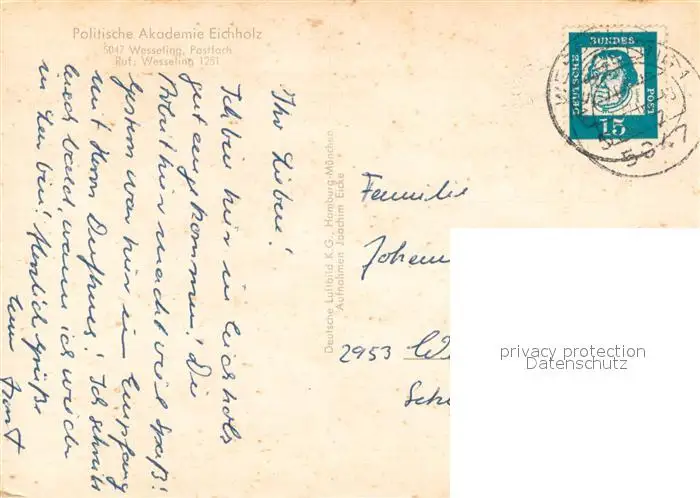 Politische Akademie Eichholz
5047 Wesseling, Postfach
Ruf: Wesseling 1251
Ihr Lieben!
Ich bin hier in Eichholz
gut angekommen! Die
Arbeit hier macht viel Spaß!
Gestern war hier ein Empfang
mit Herrn Dufhues! Ich schreibe
bald, wann ich wieder
in Leer bin! Herzliche Grüße
Euer Horst
Deutsche Luftbild K.G., Hamburg-München
Aufnahmen Joachim Eicke
DEUTSCHE BUNDES POST
15
5047
Familie
Johann
2953
privacy protection
Datenschutz